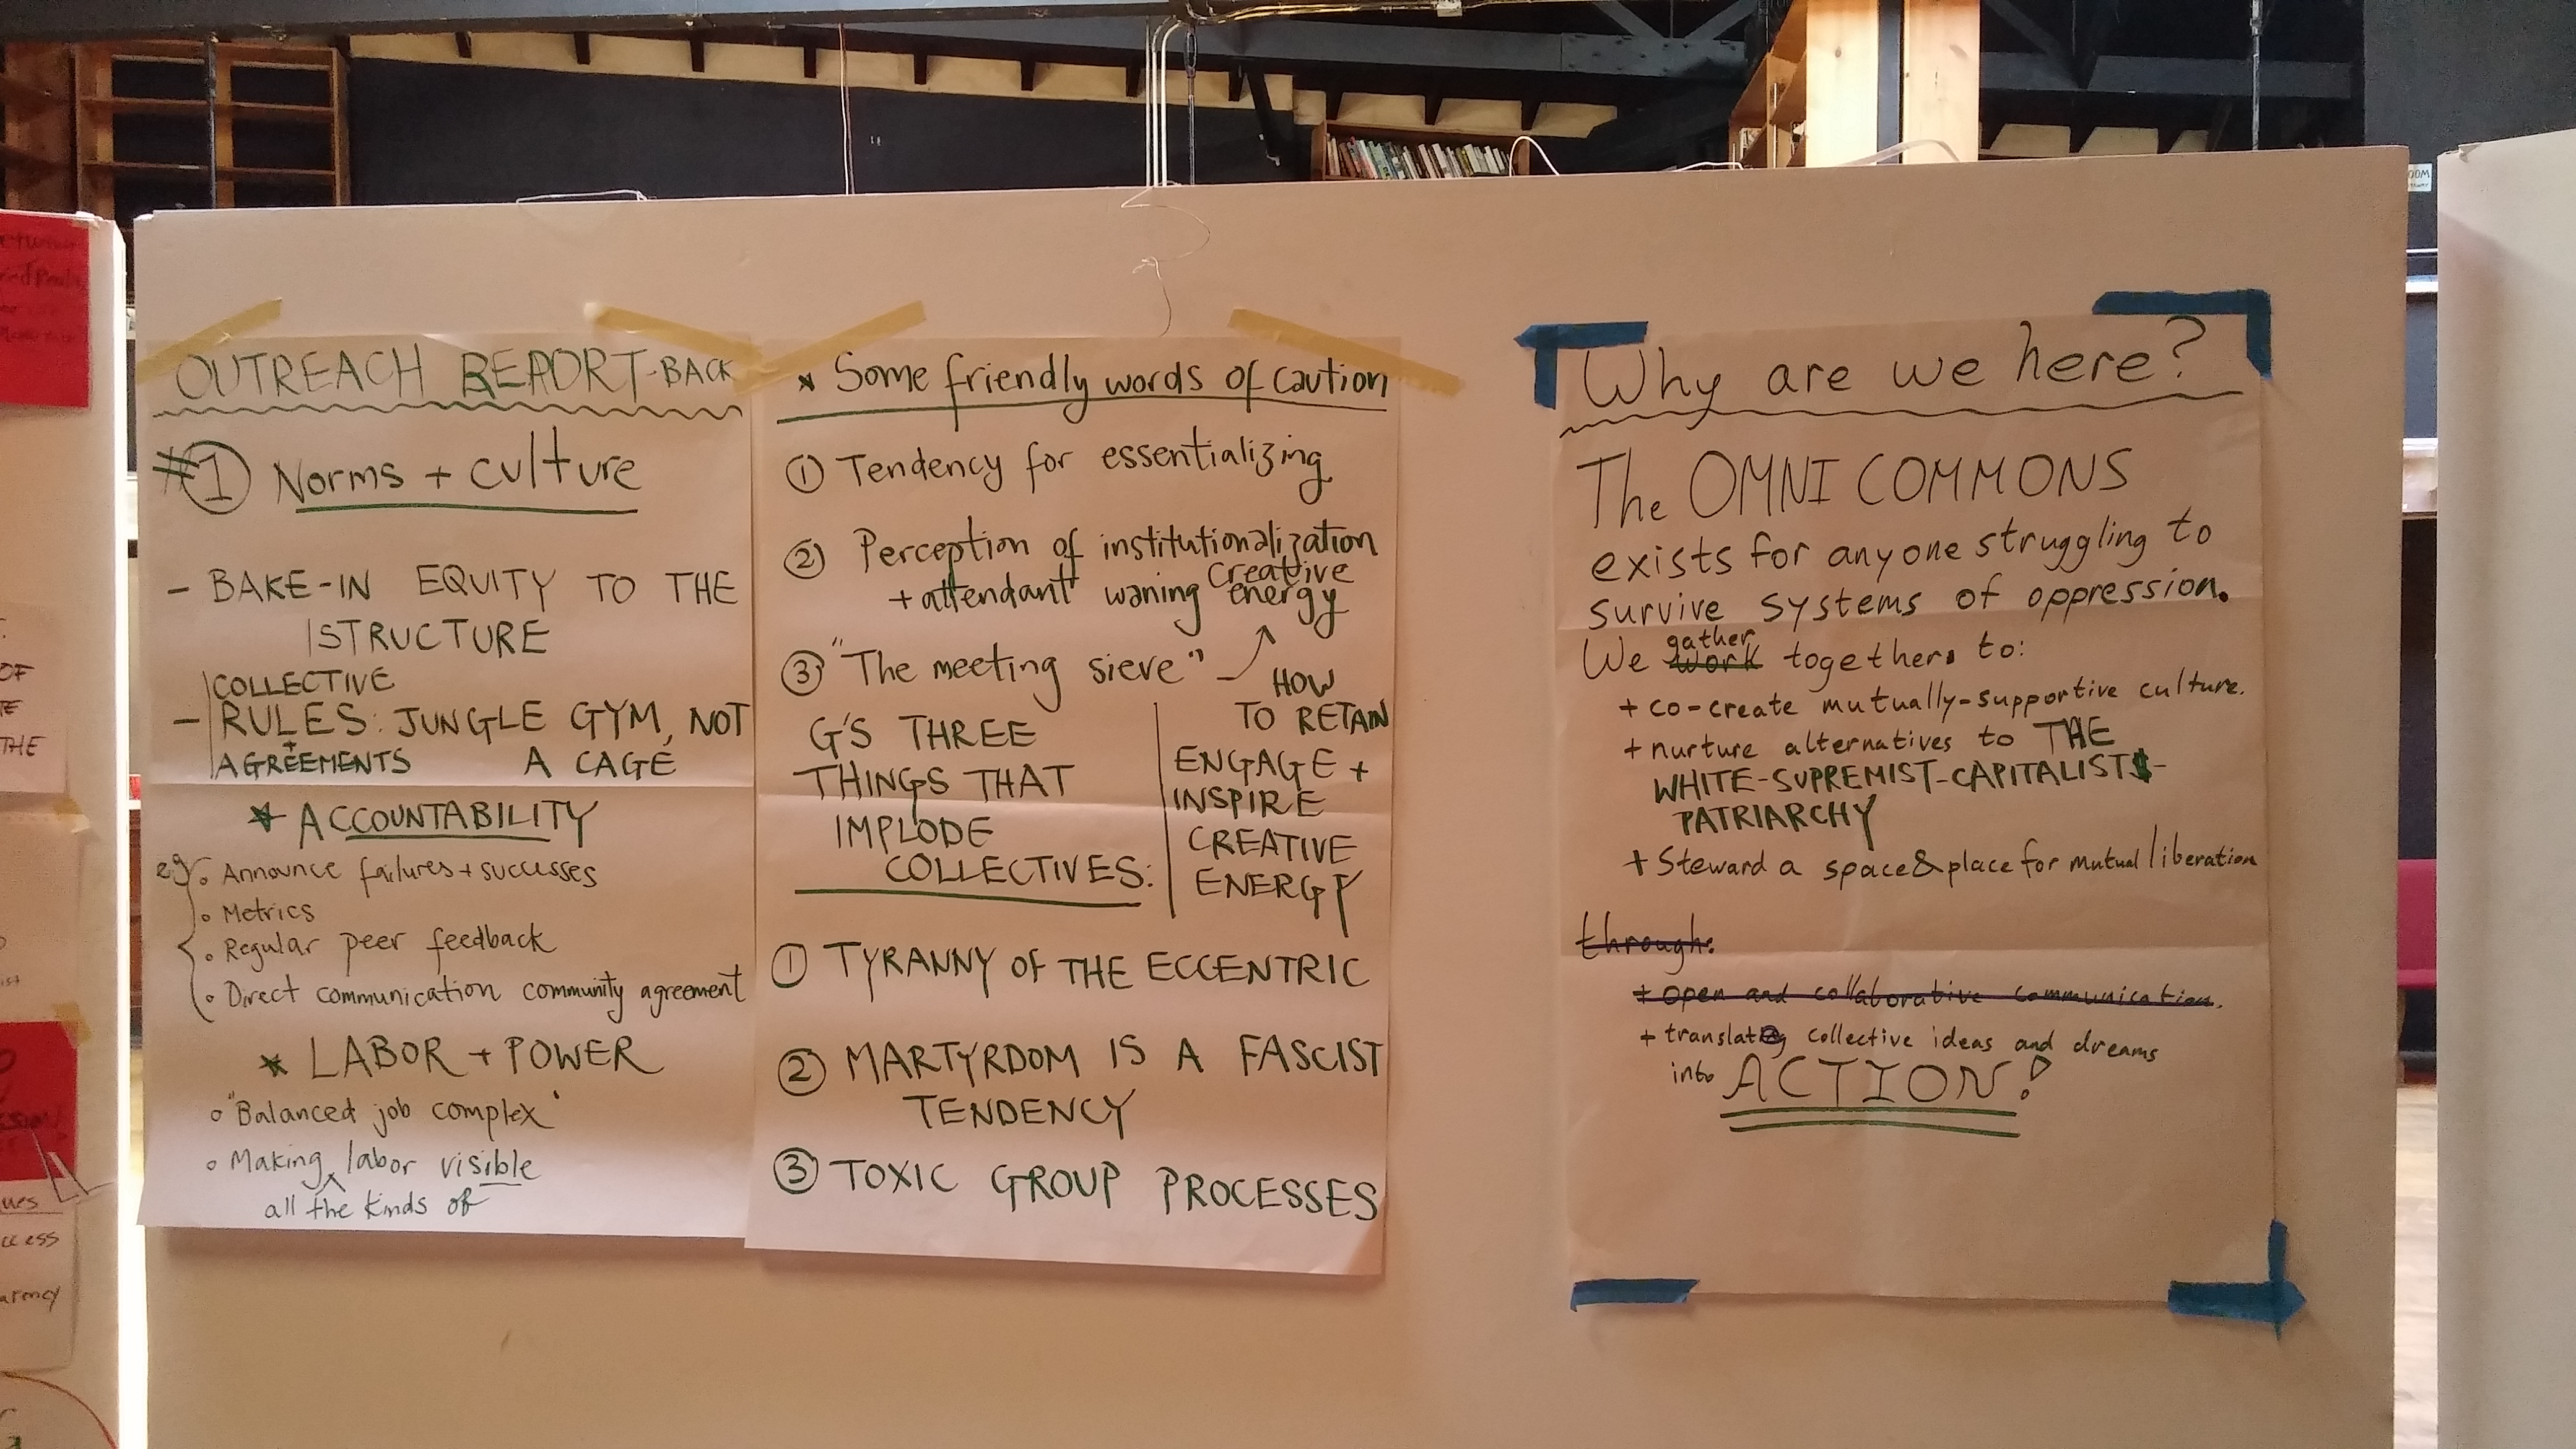 OUTREACH REPORT-BACK
#1 Norms + culture
- BAKE-IN EQUITY TO THE
STRUCTURE
COLLECTIVE
- RULES: JUNGLE GYM, NOT
+
AGREEMENTS A CAGE
* ACCOUNTABILITY
eg. • Announce failures + successes
• Metrics
• Regular peer feedback
• Direct communication community agreement
* LABOR + POWER
• "Balanced job complex"
• Making labor visible
all the kinds of
* Some friendly words of caution
① Tendency for essentializing
② Perception of institutionalization
creative
+ attendant waning energy
③ "The meeting sieve"
HOW
TO RETAIN
ENGAGE +
INSPIRE
CREATIVE
ENERGY
G'S THREE
THINGS THAT
IMPLODE
COLLECTIVES:
① TYRANNY OF THE ECCENTRIC
② MARTYRDOM IS A FASCIST
TENDENCY
③ TOXIC GROUP PROCESSES
Why are we here?
The OMNI COMMONS
exists for anyone struggling to
survive systems of oppression.
gather
We work together to:
+ co-create mutually-supportive culture.
+ nurture alternatives to THE
WHITE-SUPREMIST-CAPITALIST-
PATRIARCHY
+ Steward a space & place for mutual liberation
through:
+ open and collaborative communication.
+ translate collective ideas and dreams
into ACTION!
OF
THE
ues
ccess